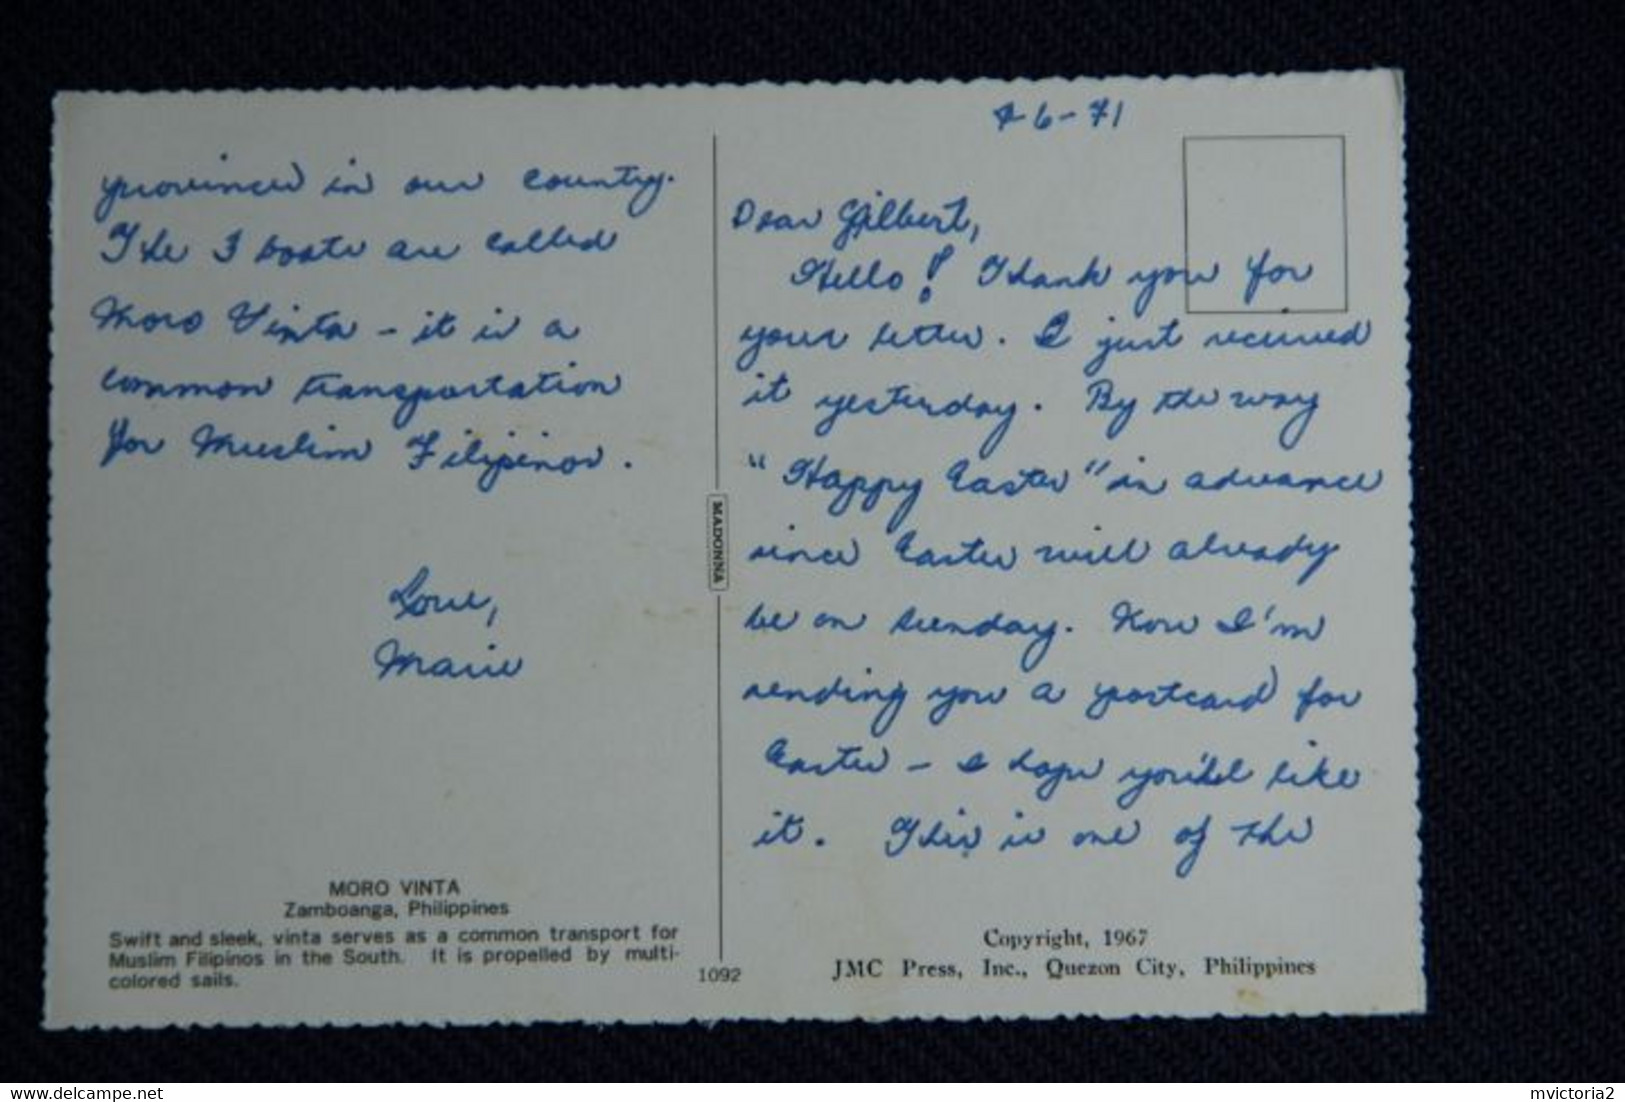 4-6-71
Dear Gilbert,
Hello! Thank you for
your letter. I just received
it yesterday. By the way
"Happy Easter" in advance
since Easter will already
be on Sunday. Now I'm
sending you a postcard for
Easter - I hope you'll like
it. This is one of the
provinces in our country.
The 3 boats are called
Moro Vinta - it is a
common transportation
for Muslim Filipinos.
Love,
Marie
MADONNA
MORO VINTA
Zamboanga, Philippines
Swift and sleek, vinta serves as a common transport for
Muslim Filipinos in the South. It is propelled by multi-
colored sails.
1092
Copyright, 1967
JMC Press, Inc., Quezon City, Philippines
delcampe.net
mvictoria2